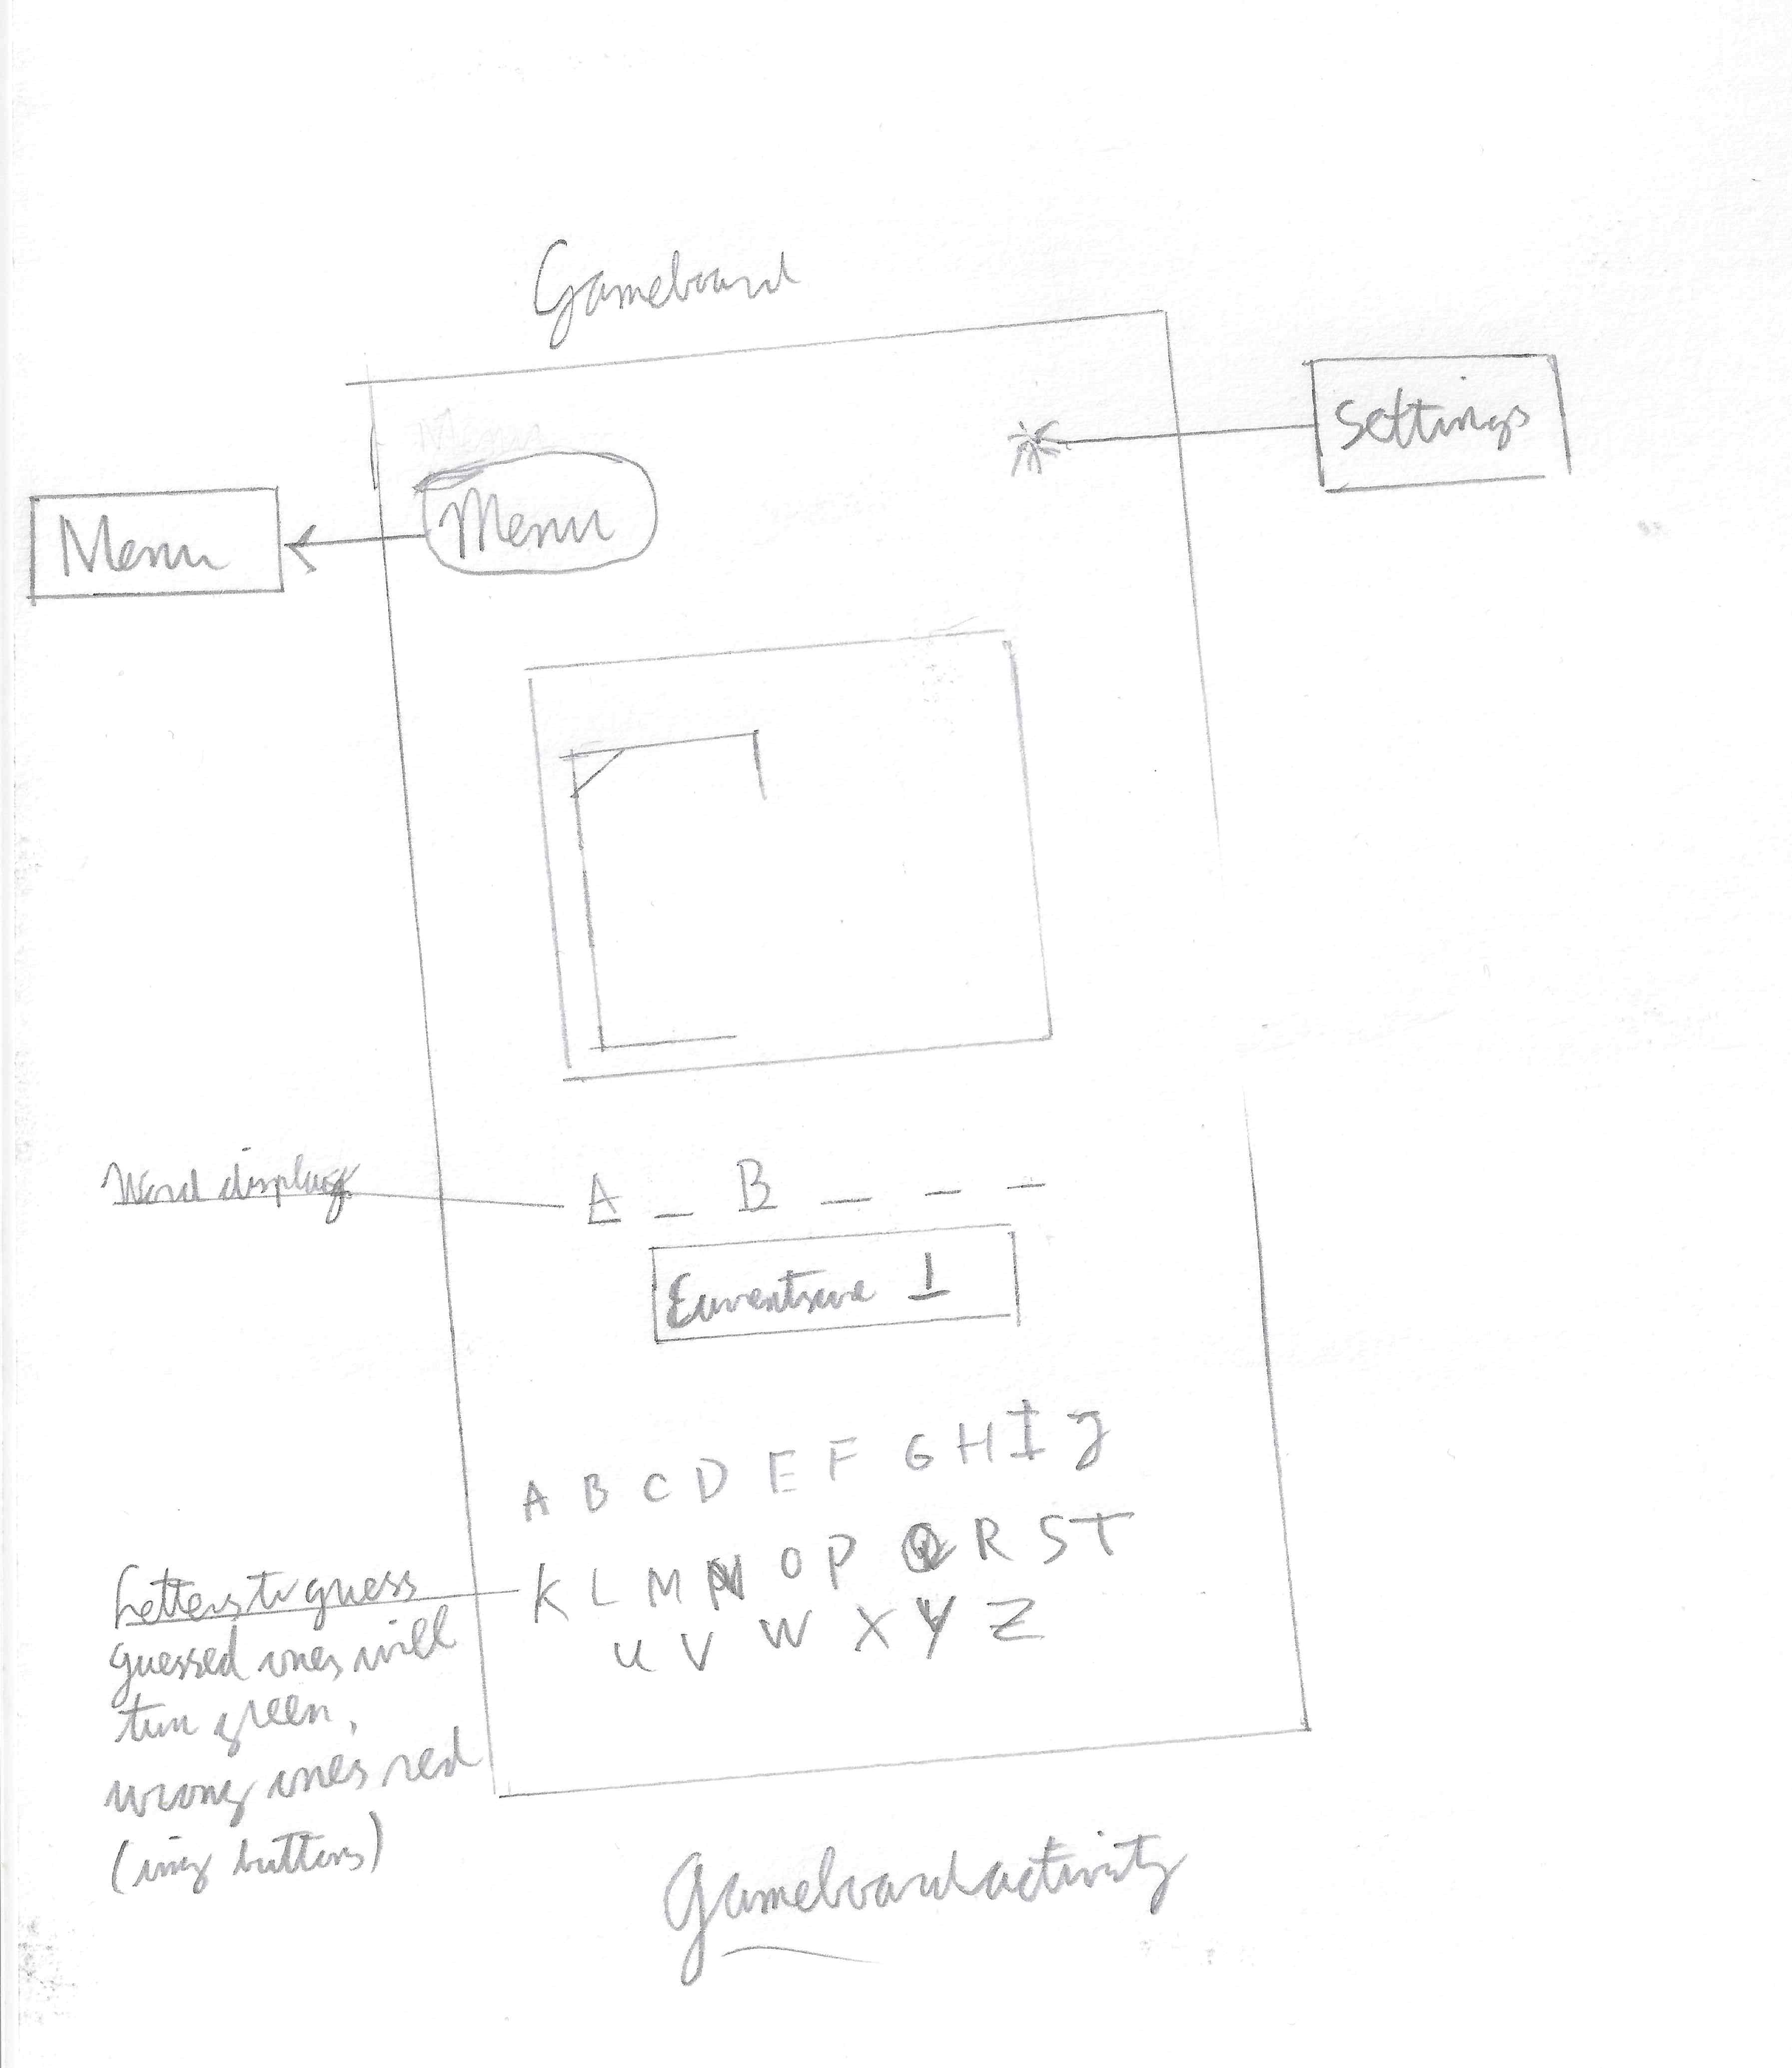 Gameboard
Settings
Menu
Menu
Word display
A _ B _ _ _
1
A B C D E F G H I J
K L M N O P Q R S T
U V W X Y Z
Letters to guess
guessed ones will
turn green,
wrong ones red
(img buttons)
Gameboardactivity